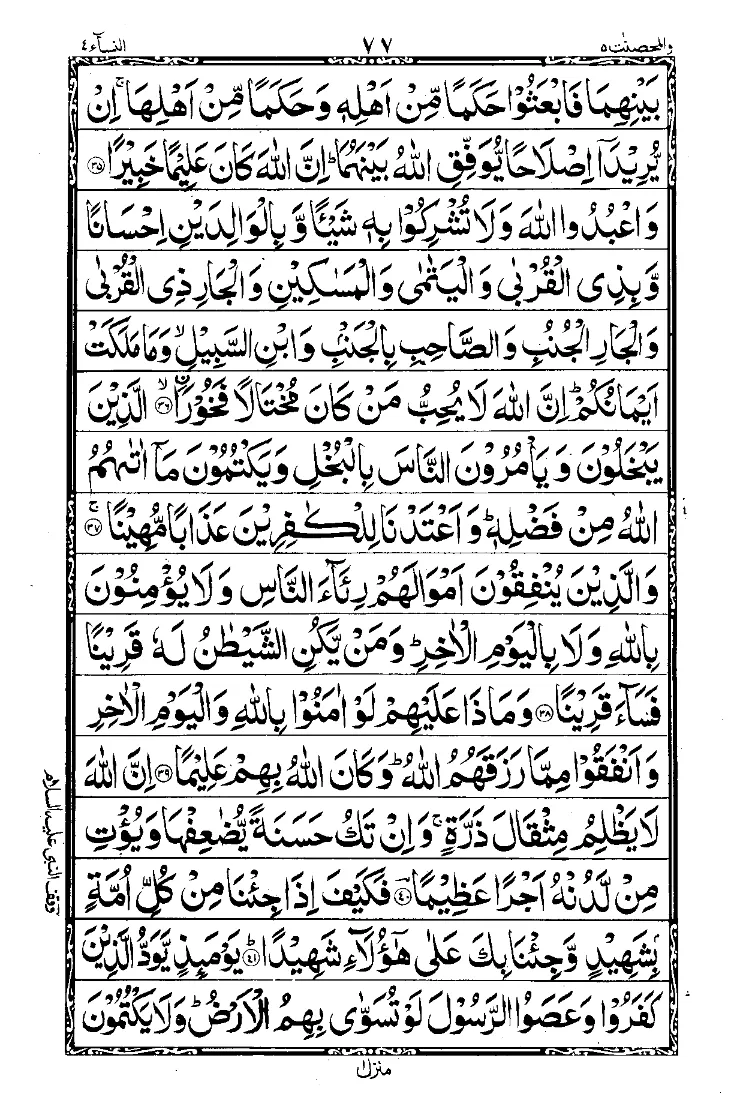 والمحصنٰت ٥ ٧٧ النسآء ٤
بَيْنِهِمَا فَابْعَثُوْا حَكَمًا مِّنْ اَهْلِهٖ وَحَكَمًا مِّنْ اَهْلِهَا ۚ اِنْ
يُّرِيْدَاۤ اِصْلَاحًا يُّوَفِّقِ اللّٰهُ بَيْنَهُمَا ؕ اِنَّ اللّٰهَ كَانَ عَلِيْمًا خَبِيْرًا ﴿٣٥﴾
وَاعْبُدُوا اللّٰهَ وَلَا تُشْرِكُوْا بِهٖ شَيْـًٔا وَّبِالْوَالِدَيْنِ اِحْسَانًا
وَّبِذِى الْقُرْبٰى وَالْيَتٰمٰى وَالْمَسٰكِيْنِ وَالْجَارِ ذِى الْقُرْبٰى
وَالْجَارِ الْجُنُبِ وَالصَّاحِبِ بِالْجَنْۢبِ وَابْنِ السَّبِيْلِ ۙ وَمَا مَلَكَتْ
اَيْمَانُكُمْ ؕ اِنَّ اللّٰهَ لَا يُحِبُّ مَنْ كَانَ مُخْتَالًا فَخُوْرًا ۙ﴿٣٦﴾ الَّذِيْنَ
يَبْخَلُوْنَ وَيَاْمُرُوْنَ النَّاسَ بِالْبُخْلِ وَيَكْتُمُوْنَ مَاۤ اٰتٰىهُمُ
اللّٰهُ مِنْ فَضْلِهٖ ؕ وَاَعْتَدْنَا لِلْكٰفِرِيْنَ عَذَابًا مُّهِيْنًا ۚ﴿٣٧﴾
وَالَّذِيْنَ يُنْفِقُوْنَ اَمْوَالَهُمْ رِئَآءَ النَّاسِ وَلَا يُؤْمِنُوْنَ
بِاللّٰهِ وَلَا بِالْيَوْمِ الْاٰخِرِ ؕ وَمَنْ يَّكُنِ الشَّيْطٰنُ لَهٗ قَرِيْنًا
فَسَآءَ قَرِيْنًا ﴿٣٨﴾ وَمَاذَا عَلَيْهِمْ لَوْ اٰمَنُوْا بِاللّٰهِ وَالْيَوْمِ الْاٰخِرِ
وَاَنْفَقُوْا مِمَّا رَزَقَهُمُ اللّٰهُ ؕ وَكَانَ اللّٰهُ بِهِمْ عَلِيْمًا ﴿٣٩﴾ اِنَّ اللّٰهَ
لَا يَظْلِمُ مِثْقَالَ ذَرَّةٍ ۚ وَاِنْ تَكُ حَسَنَةً يُّضٰعِفْهَا وَيُؤْتِ
مِنْ لَّدُنْهُ اَجْرًا عَظِيْمًا ﴿٤٠﴾ فَكَيْفَ اِذَا جِئْنَا مِنْ كُلِّ اُمَّةٍ
بِشَهِيْدٍ وَّجِئْنَا بِكَ عَلٰى هٰۤؤُلَآءِ شَهِيْدًا ؕ﴿٤١﴾ يَوْمَئِذٍ يَّوَدُّ الَّذِيْنَ
كَفَرُوْا وَعَصَوُا الرَّسُوْلَ لَوْ تُسَوّٰى بِهِمُ الْاَرْضُ ؕ وَلَا يَكْتُمُوْنَ
وقف النبى عليه السلام
منزل ١